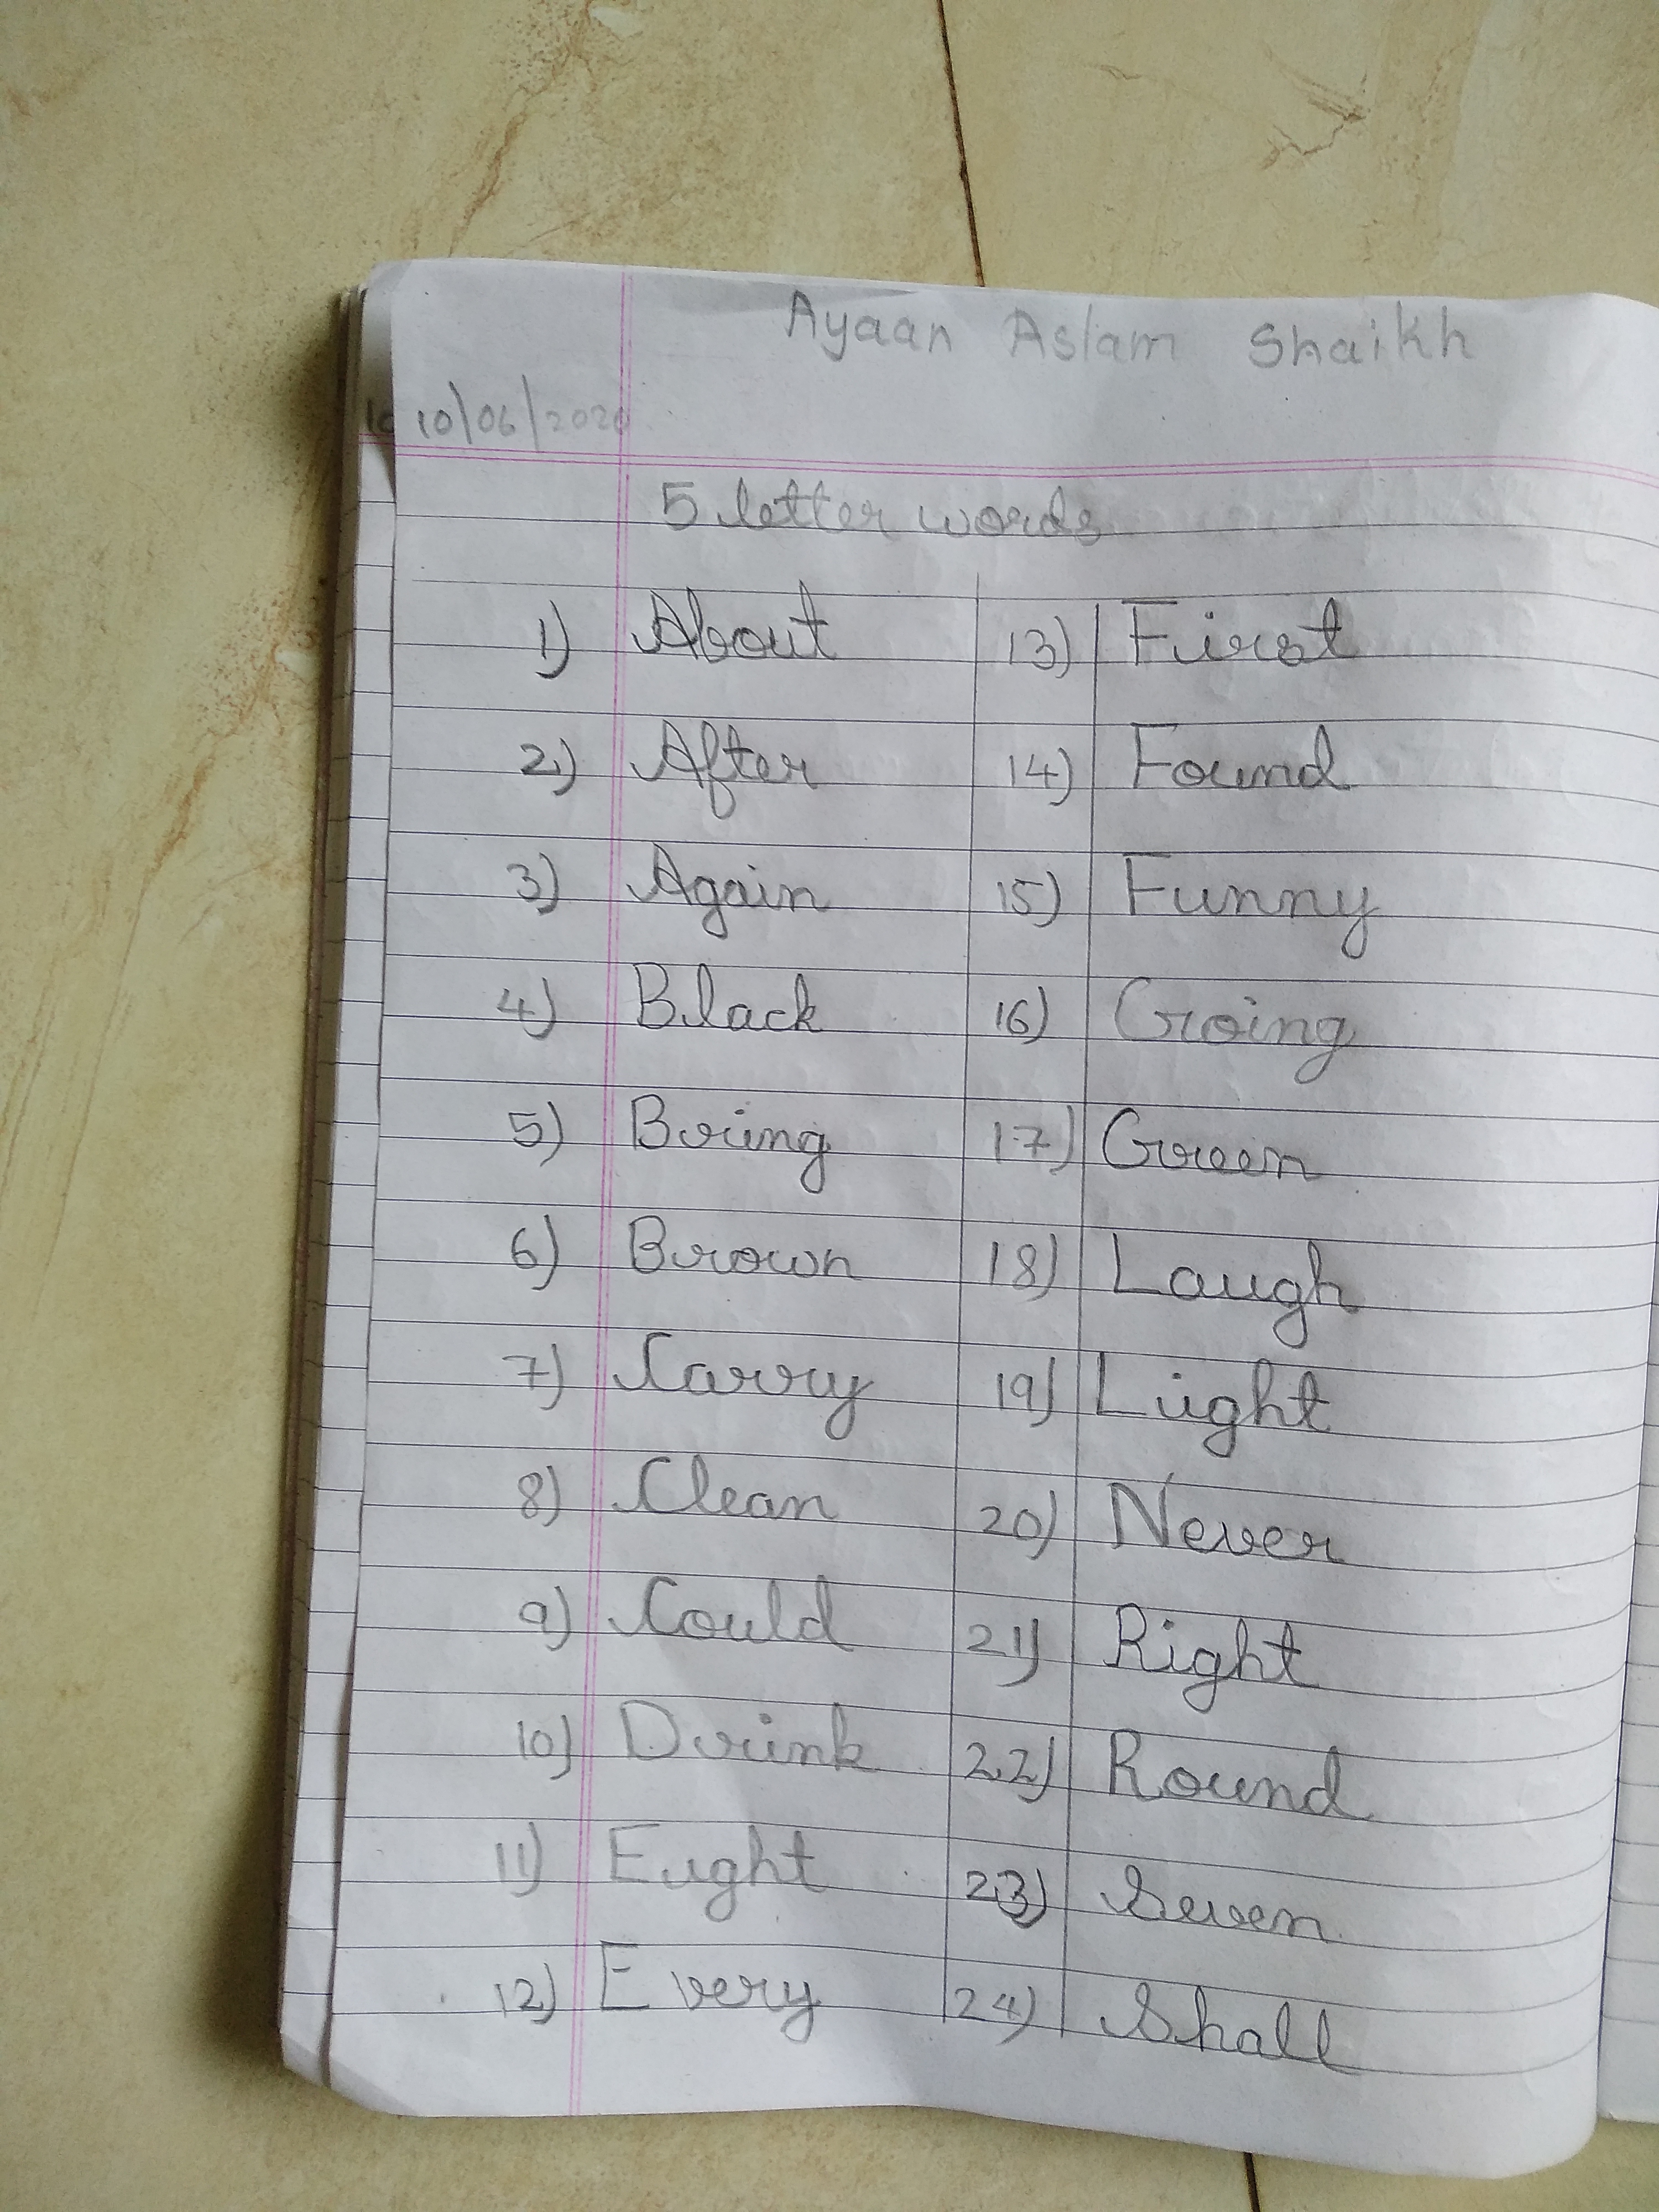 Ayaan Aslam Shaikh
10/06/2020
5 letter words
1) About
2) After
3) Again
4) Black
5) Bring
6) Brown
7) Carry
8) Clean
9) Could
10) Drink
11) Eight
12) Every
13) First
14) Found
15) Funny
16) Going
17) Green
18) Laugh
19) Light
20) Never
21) Right
22) Round
23) Seven
24) Shall